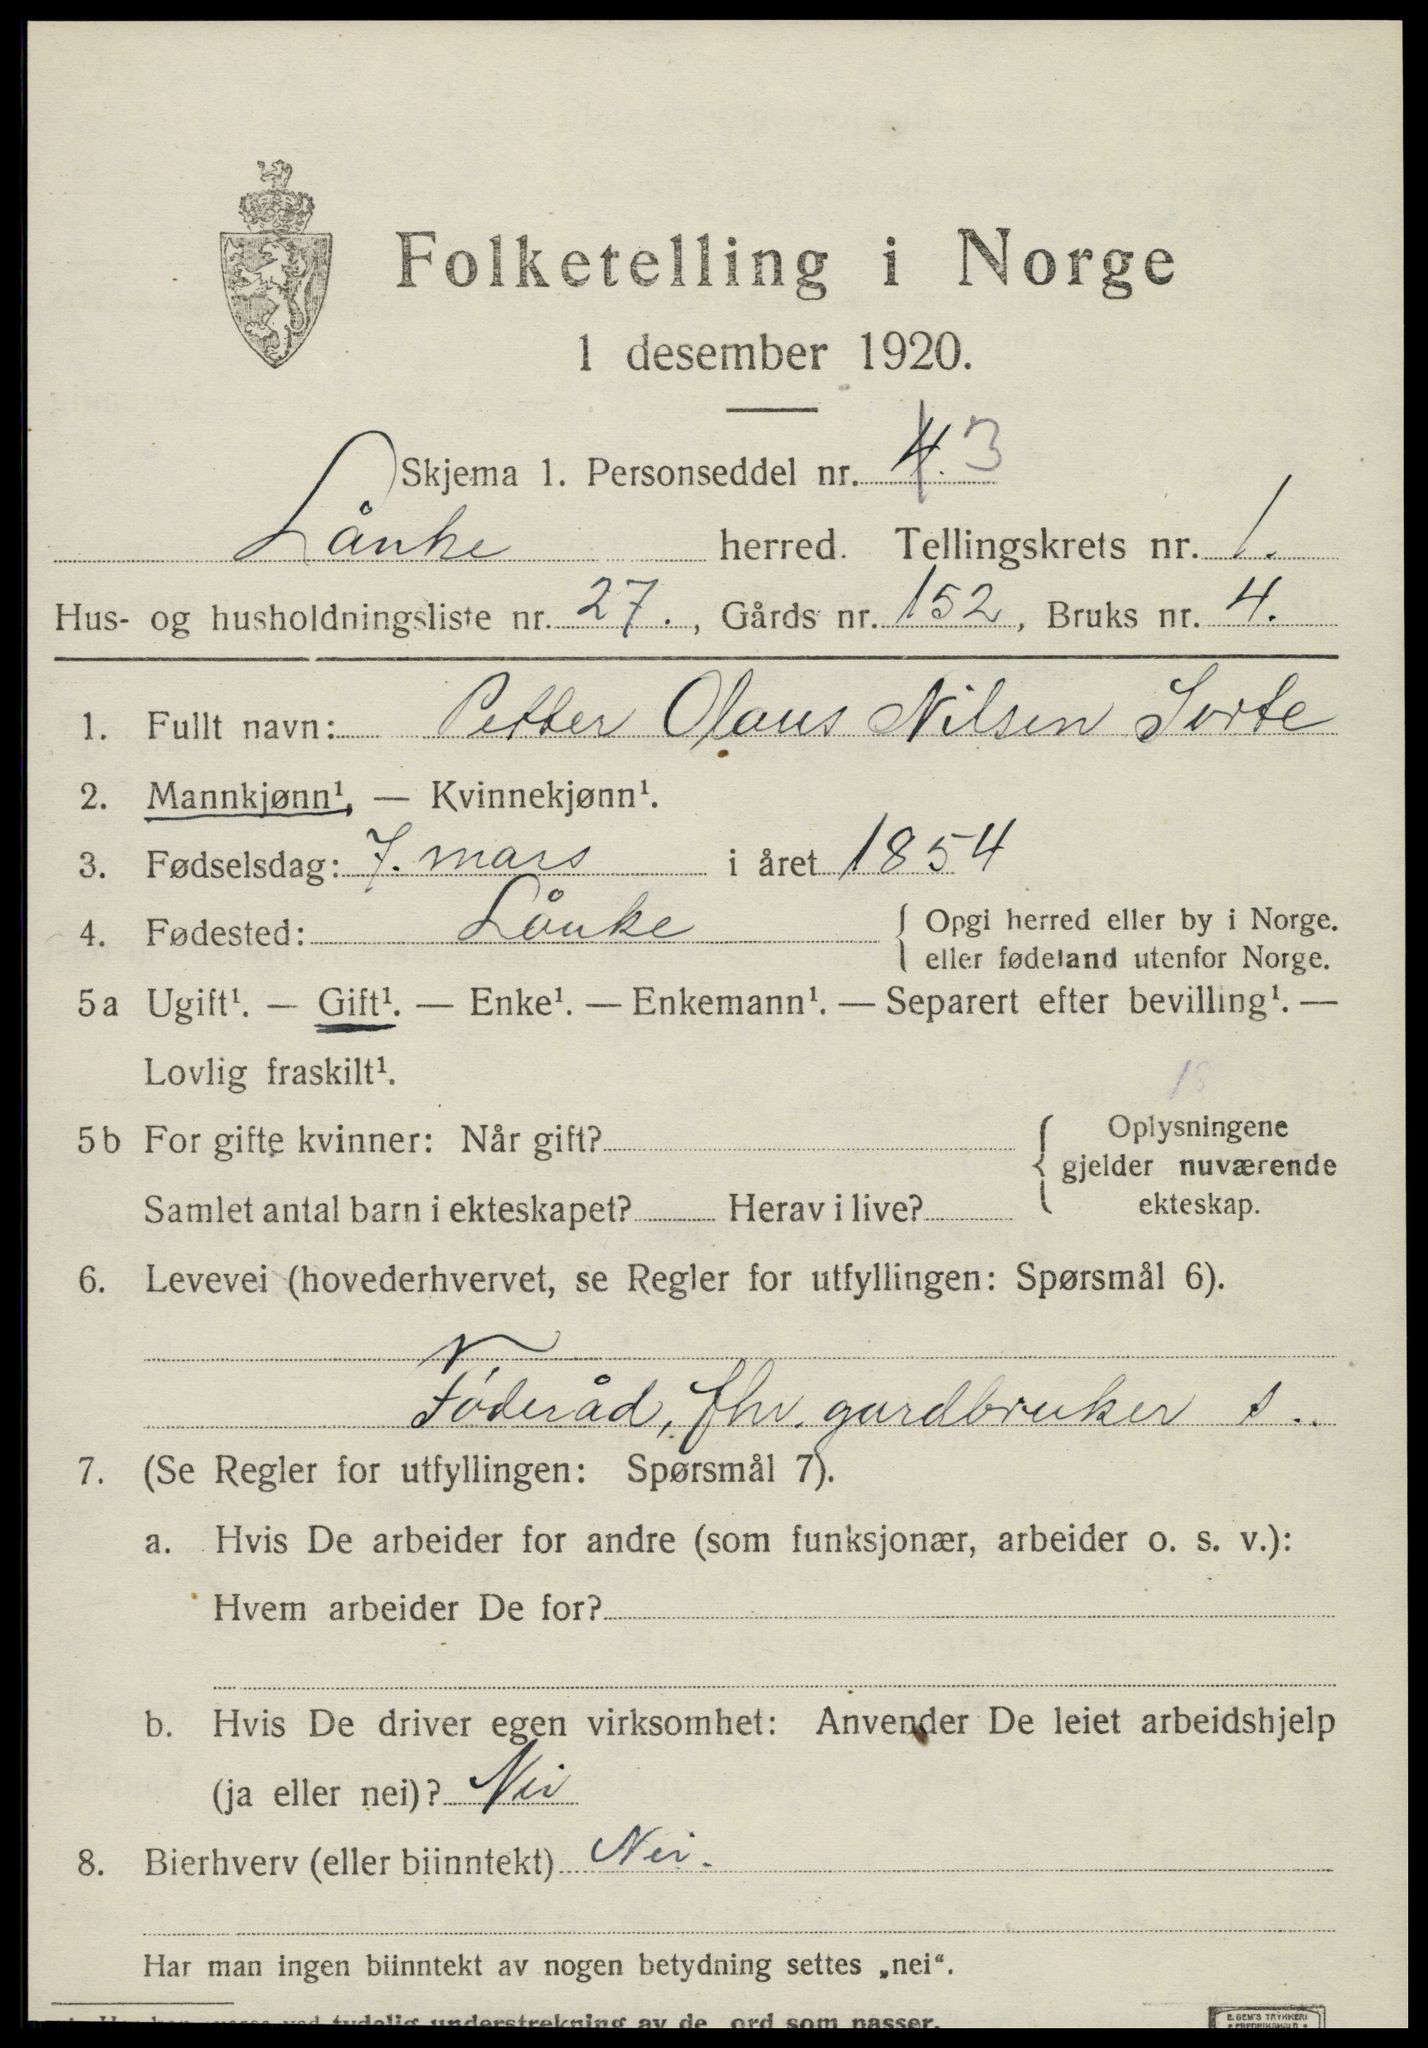 Folketelling i Norge
1 desember 1920.
Skjema 1. Personseddel nr. 4. 3
Lånke herred. Tellingskrets nr. 1.
Hus- og husholdningsliste nr. 27. , Gårds nr. 152, Bruks nr. 4.
1. Fullt navn: Petter Olaus Nilsen Sorte
2. Mannkjønn¹, — Kvinnekjønn¹.
3. Fødselsdag: 7. mars i året 1854
4. Fødested: Lånke { Opgi herred eller by i Norge.
eller fødeland utenfor Norge.
5a Ugift¹. — Gift¹. — Enke¹. — Enkemann¹. — Separert efter bevilling¹. —
Lovlig fraskilt¹.
5b For gifte kvinner: Når gift? { Oplysningene
gjelder nuværende
Samlet antal barn i ekteskapet? Herav i live? ekteskap.
6. Levevei (hovederhvervet, se Regler for utfyllingen: Spørsmål 6).
Føderåd, fhv. gardbruker s..
7. (Se Regler for utfyllingen: Spørsmål 7).
a. Hvis De arbeider for andre (som funksjonær, arbeider o. s. v.):
Hvem arbeider De for?
b. Hvis De driver egen virksomhet: Anvender De leiet arbeidshjelp
(ja eller nei)? Nei
8. Bierhverv (eller biinntekt) Nei.
Har man ingen biinntekt av nogen betydning settes „nei“.
tydelig understrekning av de ord som passer.
E. SEM'S TRYKKERI
FREDRIKSHALD